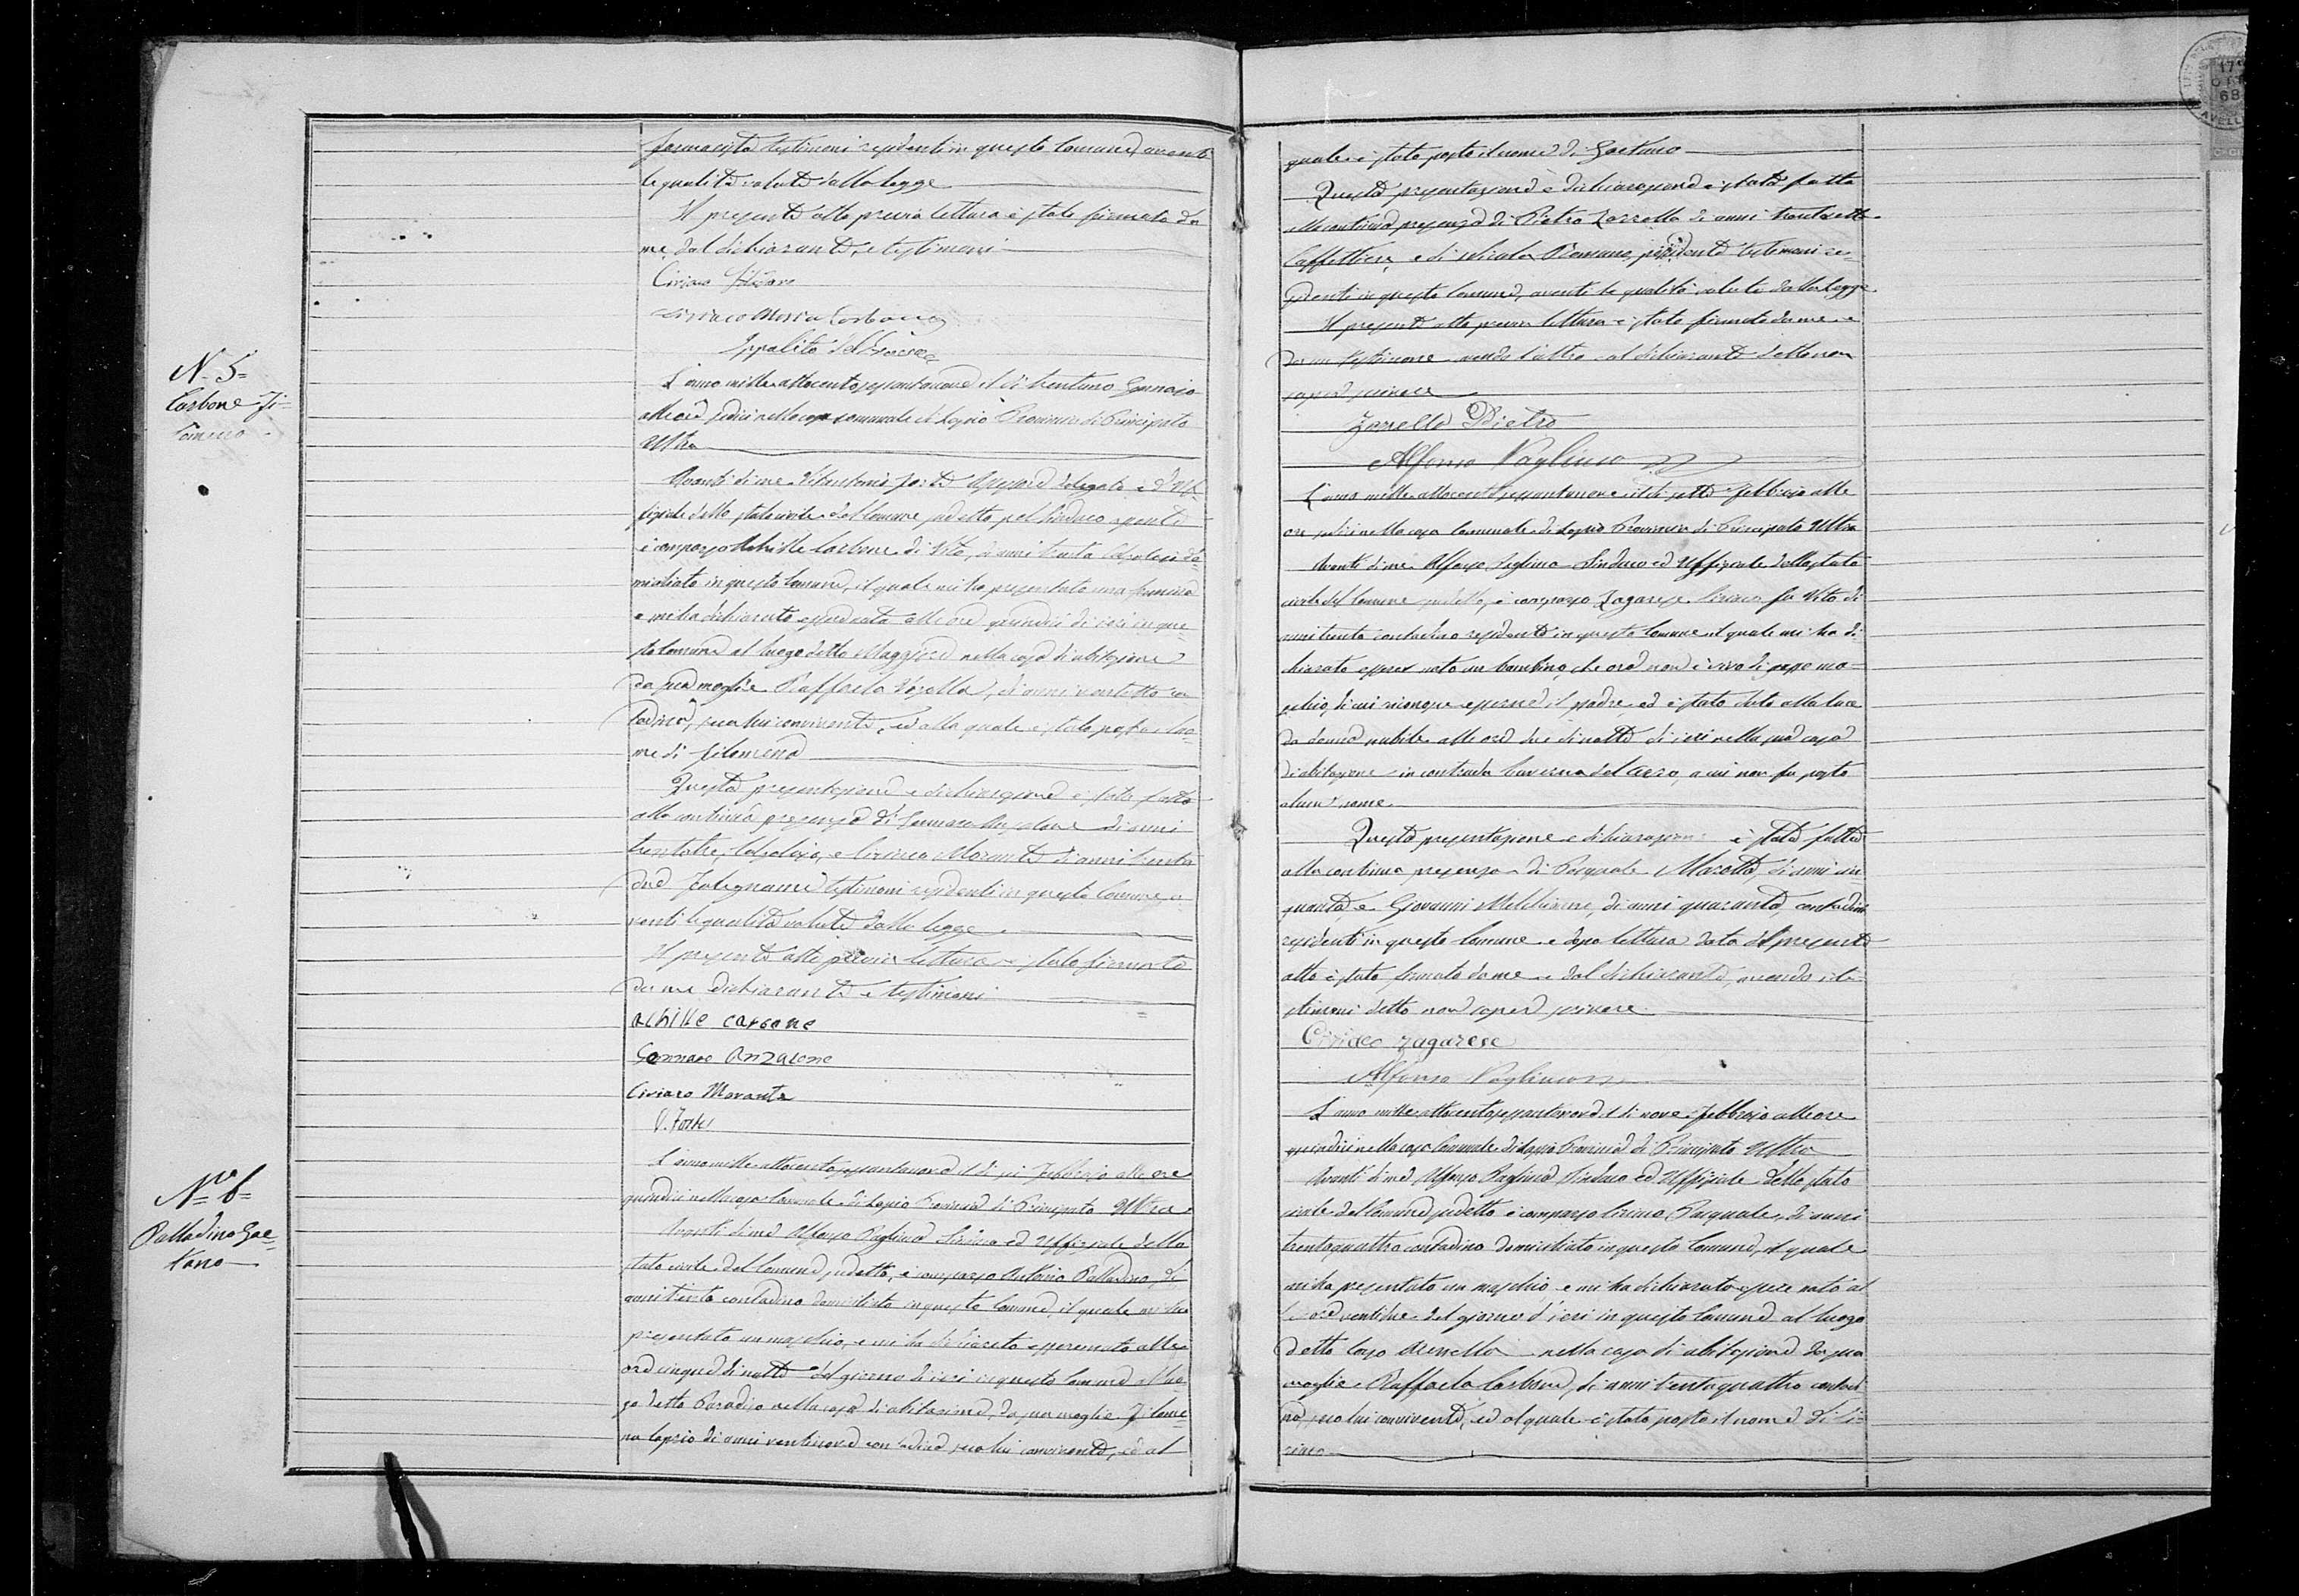 farmacista testimoni residenti in questo Comune, aventi
le qualità volute dalla legge
Il presente atto previa lettura è stato firmato da
me, dal dichiarante, e testimoni
Ciriaco
Ciriaco Maria Carbone
Ippolito del
N. 5=
Carbone Fi=
lomena
L'anno mille ottocento sessantanove il dì trentuno Gennajo
alle ore sedici nella casa comunale di Lapio Provincia di Principato
Ultra
Avanti di me Vitantonio Forte Assessore delegato ed Uf=
fiziale dello stato civile del Comune sudetto pel Sindaco assente
è comparso Achille Carbone di Vito, di anni trenta Calzolajo do=
miciliato in questo Comune, il quale mi ha presentato una femina
e mi ha dichiarato esser nata alle ore quindici di ieri in que=
sto Comune al luogo detto Maggiore nella casa di abitazione
da sua moglie Raffaela di anni ventotto con
tadina, seco lui convivente, ed alla quale è stato posto il no=
me di Filomena
Questa presentazione e dichiarazione è stata fatta
alla continua presenza di Gennaro Anzalone di anni
trentatre, Calzolajo, e Ciriaco Morante di anni trenta
due Falegname testimoni residenti in questo Comune, a
venti le qualità volute dalla legge.
Il presente atto previa lettura è stato firmato
da me dichiarante e testimoni
achille carbone
Gennaro Anzalone
Ciriaco Morante
V. Forte
N.ro 6=
Palladino Gae=
tano
L'anno mille ottocento sessantanove il dì sei Febbrajo alle ore
quindici nella casa Comunale di Lapio Provincia di Principato Ultra.
Avanti di me Alfonso Pagliuca Sindaco ed Uffiziale dello
stato civile del Comune sudetto, è comparso Antonio Palladino, di
anni trenta contadino domiciliato in questo Comune, il quale mi ha
presentato un maschio, e mi ha dichiarato esser nato alle
ore cinque di notte del giorno di ieri in questo Comune al luo=
go detto Paradiso nella casa di abitazione, da sua moglie Filome=
na Caprio di anni ventinove contadina seco lui convivente, ed al
quale è stato posto il nome di Gaetano
Questa presentazione e dichiarazione è stata fatta
alla continua presenza di Pietro Zarrella di anni trentasette
Caffettiere, e di Nicola Romano, possidente testimoni re=
sidenti in questo Comune, aventi le qualità volute dalla Legge.
Il presente atto previa lettura è stato firmato da me e
da un testimone avendo l'altro e il dichiarante detto non
sapere scrivere
Zarrella Pietro
Alfonso Pagliuca
L'anno mille ottocento sessantanove il dì sette Febbrajo alle
ore sedici nella casa Comunale di Lapio Provincia di Principato Ultra
Avanti di me Alfonso Pagliuca Sindaco ed Uffiziale dello stato
civile del Comune sudetto, è comparso Zagarese Ciriaco fu Vito di
anni trenta contadino residente in questo Comune il quale mi ha di=
chiarato esser nato un bambino, che ora non è vivo di sesso ma=
schio, di cui riconosce esserne il padre, ed è stato dato alla luce
da donna nubile alle ore due di notte di ieri nella sua casa
di abitazione in contrada Taverna del a cui non fu posto
alcun nome.
Questa presentazione e dichiarazione è stata fatta
alla continua presenza di Pasquale Marotta, di anni cin=
quanta e Giovanni Melchionne, di anni quaranta, contadini
residenti in questo Comune e dopo lettura data del presente
atto è stato firmato da me e dal dichiarante, avendo i te=
stimoni detto non sapere scrivere.
Ciriaco zagarese
Alfonso Pagliuca
L'anno mille ottocento sessantanove il dì nove Febbrajo alle ore
quindici nella casa Comunale di Lapio Provincia di Principato Ultra
Avanti di me Alfonso Pagliuca Sindaco ed Uffiziale dello stato
civile del Comune sudetto è comparso Ciriaco Pasquale, di anni
trentaquattro contadino domiciliato in questo Comune, il quale
mi ha presentato un maschio, e mi ha dichiarato essere nato al
le ore ventidue del giorno d'ieri in questo Comune al luogo
detto nella casa di abitazione da sua
moglie Raffaela Carbone, di anni trentaquattro contadi
na, seco lui convivente, ed al quale è stato posto il nome di Ci=
riaco